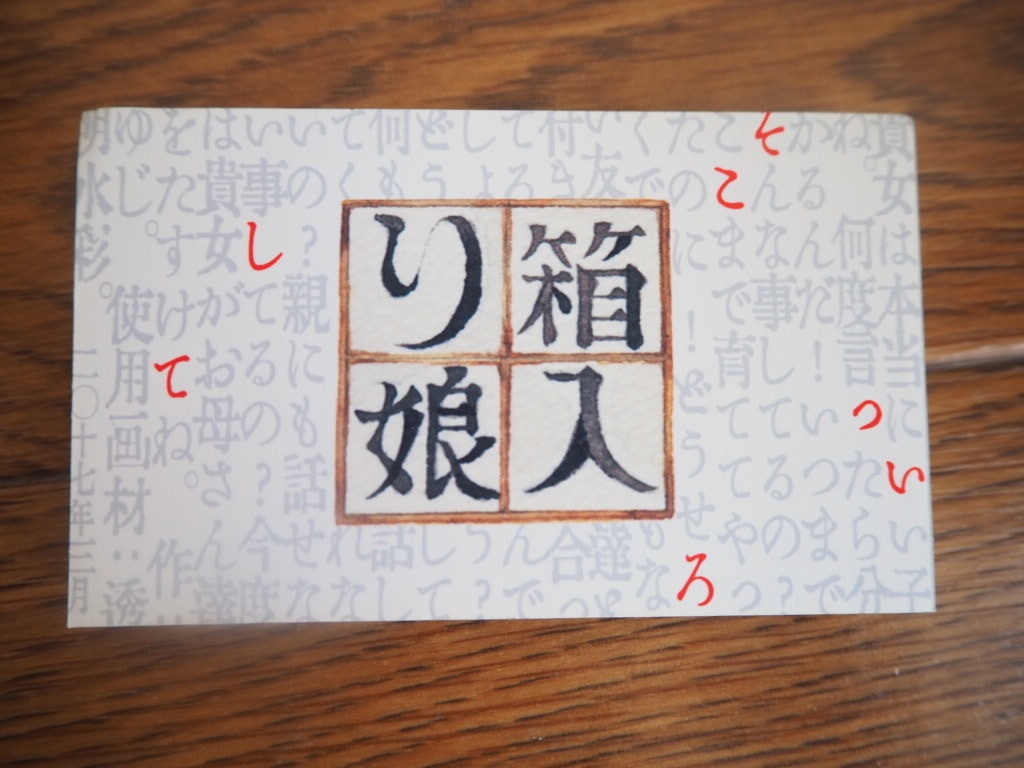 貴女は本当にいい子
ね。何度言ったら分
かるんだ!いつまで
そんな事してるの?
ここまで育ててやっ
たのに!どうせろ
くで
もな
い友
達と
付き
合っ
てる
んで
しょ
う?
どう
して
何も
話し
てく
れな
箱入
り娘
いの?親にも話せな
い事してるの?今度
は貴女がお母さん達
をたすけてね。 作
ゆじ。 使用画材:透
明水彩。 二〇十七年三月